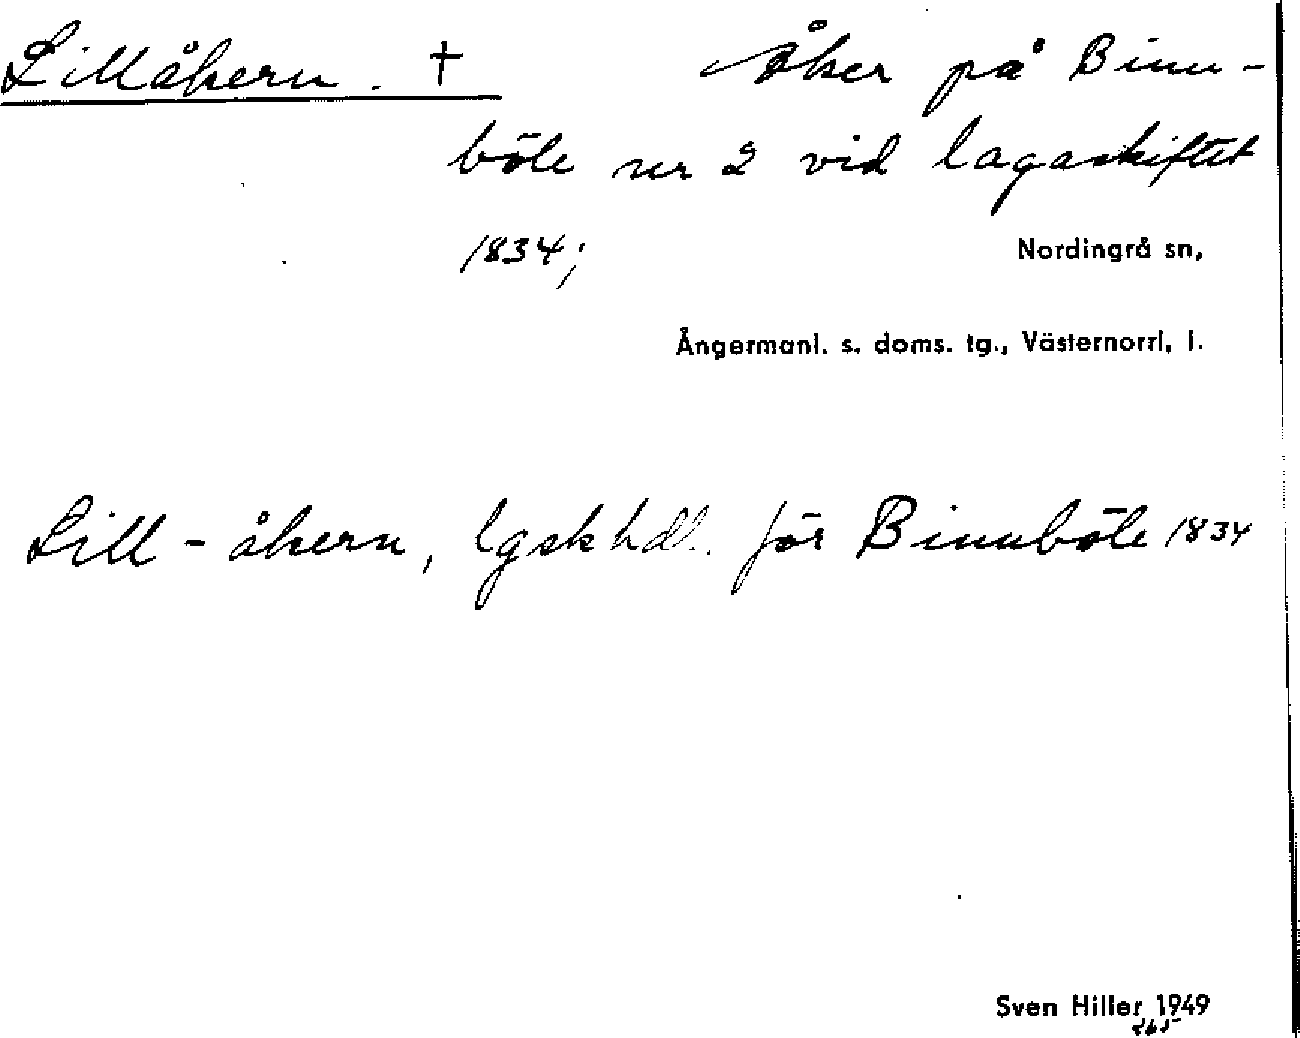 Lillåkern. † Åker på Binn-
böle nr 2 vid lagaskiftet
1834; Nordingrå sn,
Ångermanl. s. doms. tg., Västernorrl. l.
Lill-åkern, lgskhdl. för Binnböle 1834
Sven Hiller 1949